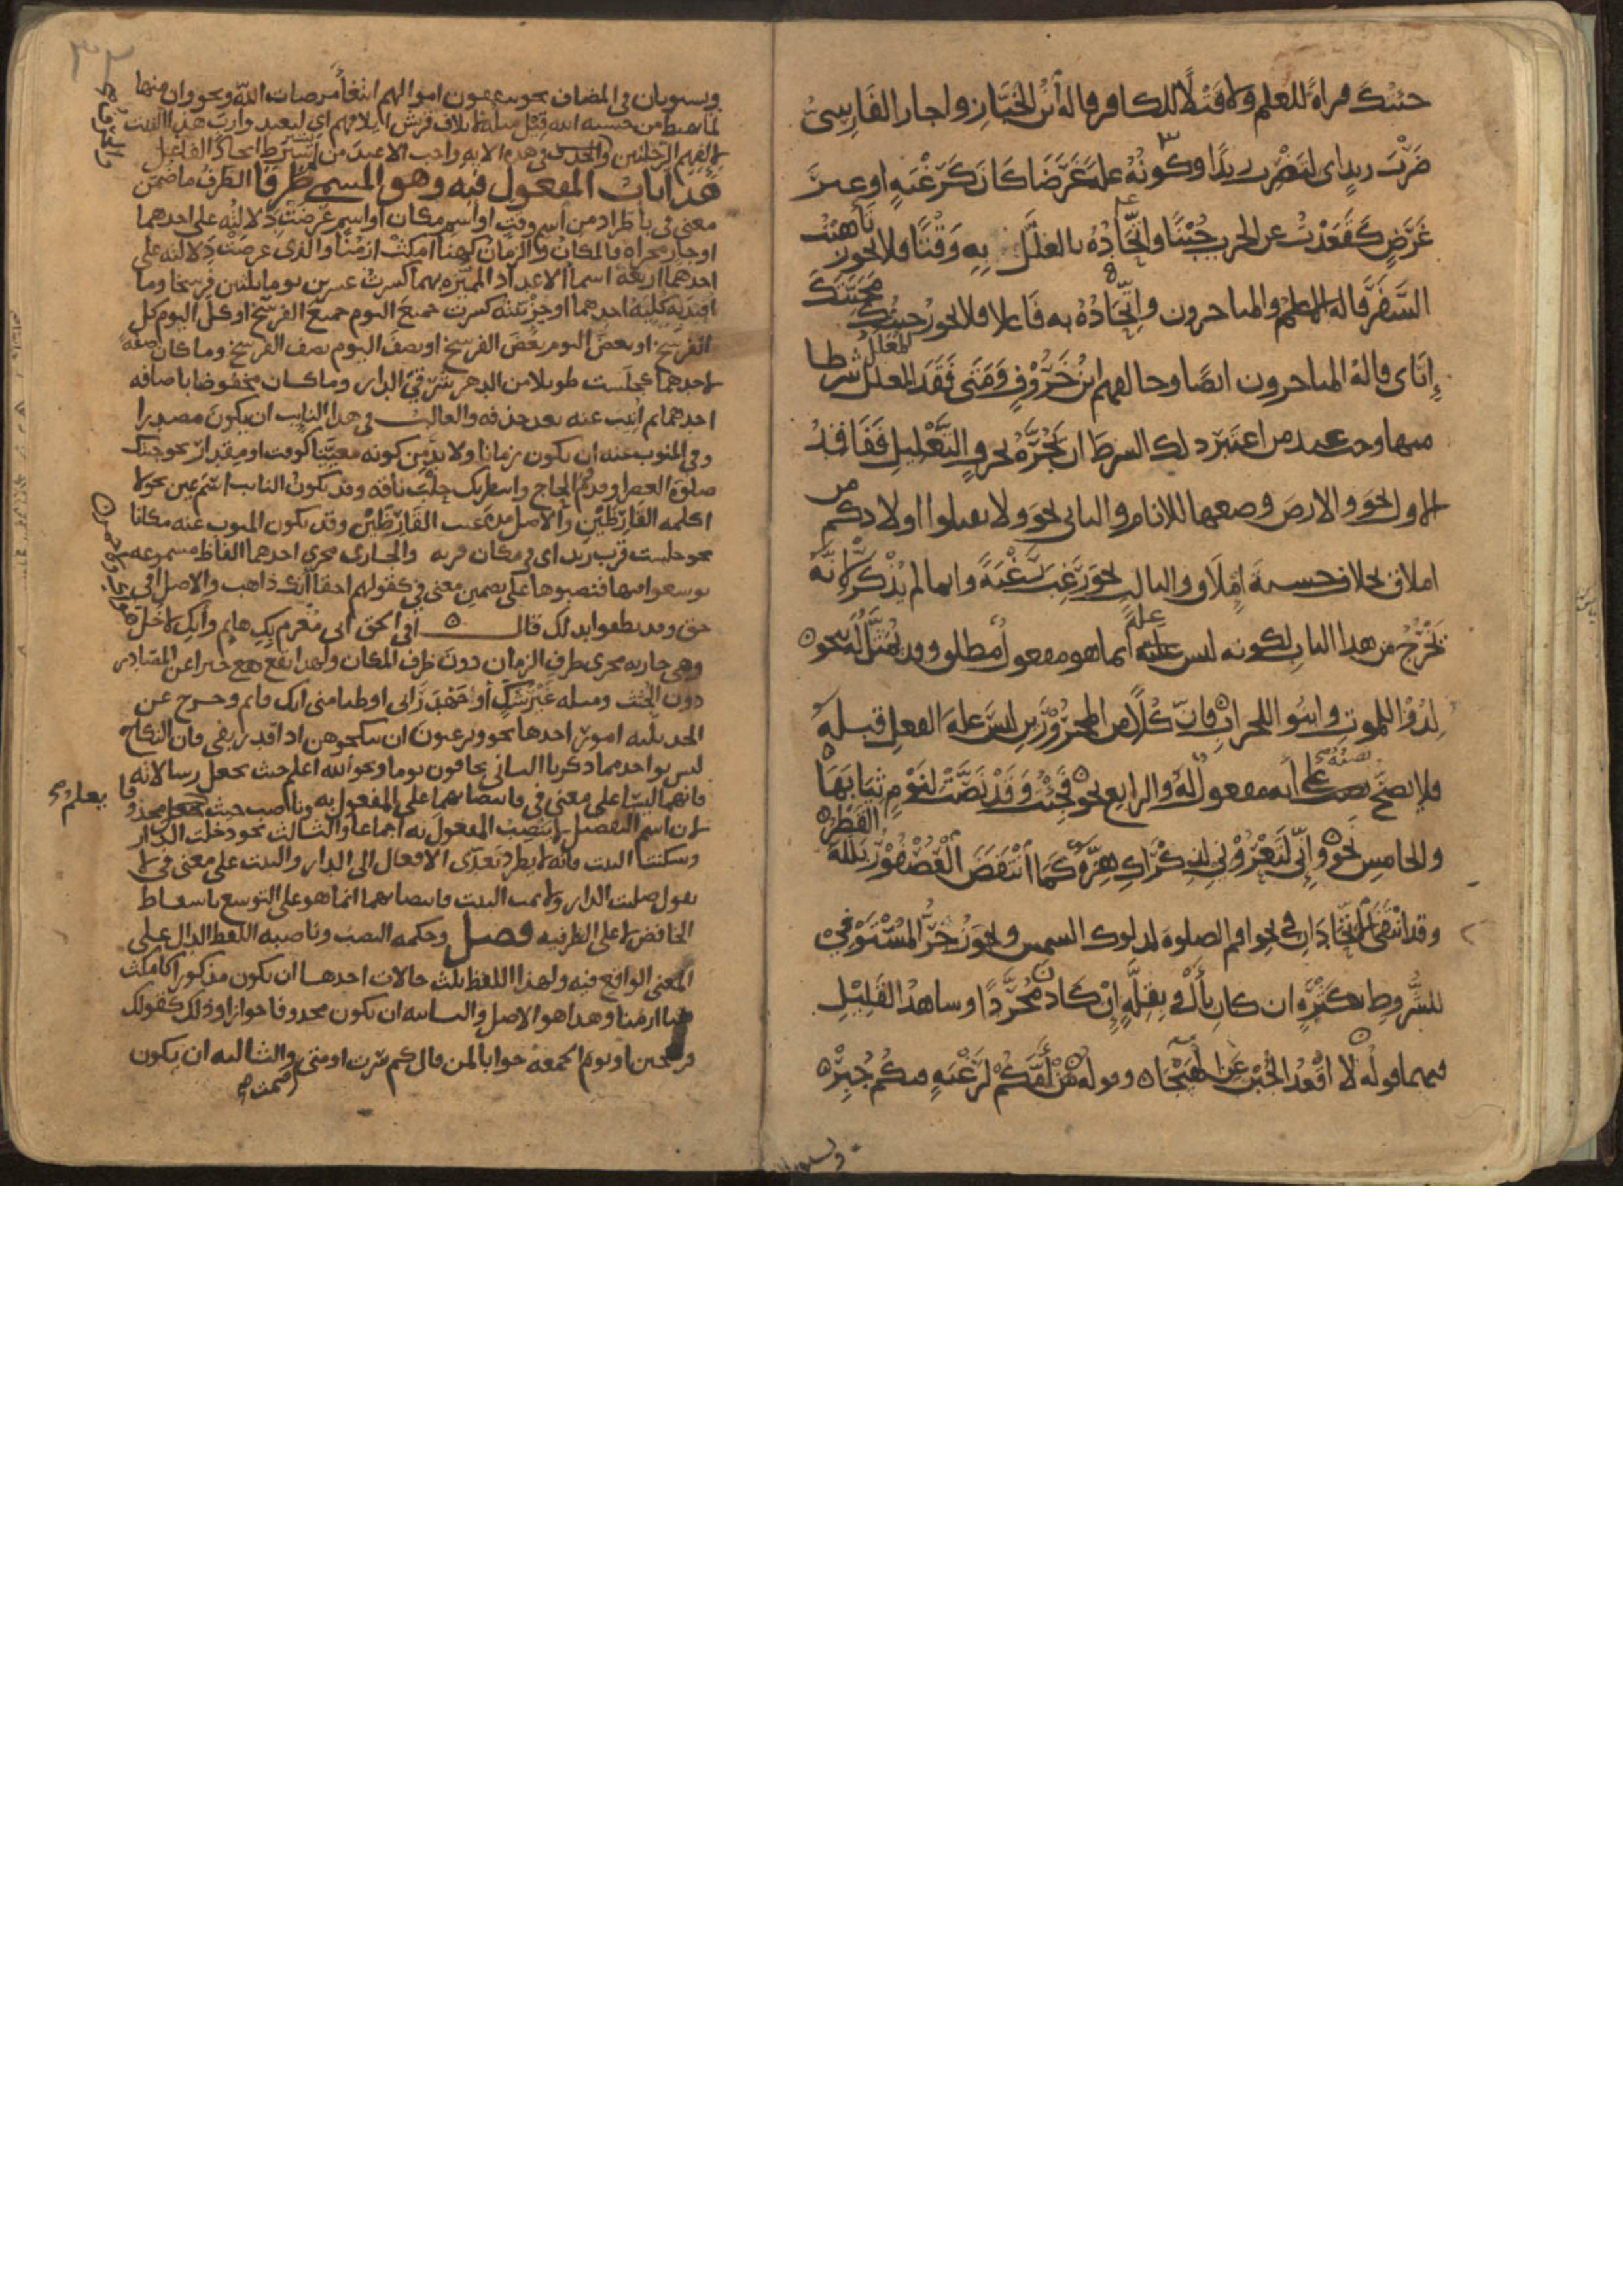 جئتك قراءةً للعلم ولا قتلًا للكافر قاله ابن الخباز واجاز الفارسي
ضربت زيدا اى لتضرب زيدا وكونه علة عَرَضا كان كَرَغْبةٍ او غير
عَرَضٍ كقَعَدْتُ عن الحرب جُبْنًا واتّحادُه بالمعلَّل به وَقْتًا فلا يجوز تأهبت
السَّفَرَ قاله الاعلم والمتاخرون واتّحادُهُ به فاعلا فلا يجوز جئتك مَحَبَّتَكَ
إيّاى قاله المتاخرون ايضًا وخالفهم ابنُ خَرُوْفٍ ومتى فَقَدَ المعلل شرطا
منها وجب عند من اعتبر ذلك الشرط ان يُجَرَّ بحرفِ التَّعْليلِ ففاقد
الاول نحو والارض وضعها للانام والثانى نحو ولا تقتلوا اولادكم من
املاق بخلاف خشية إمْلَاق والثالث نحو رَغْبةً وانما لم يُذْكَر لانّه
يَخْرُج من هذا الباب لكونه ليس علة انما هو مفعول مطلق وقد يُمَثَّلُ له بنحو
لِدُوْا للموت وابنُوا للخراب فان كُلًّا من المجرُوْرَين ليس علة الفعل قبله
فلا يصح نصبه على أنه مفعول له والرابع نحو فَجِئْتُ وَقَدْ نَضَّتْ لِنَوْمٍ ثِيَابَهَا
والخامس نحو وَإِنِّى لَتَعْرُوْنِي لِذِكْرَاكِ هِزَّةٌ كَمَا انْتَفَضَ الْعُصْفُوْرُ بَلَّلَهُ القَطْرُ
وقد انْتَفَى الاتّحادان فى نحو اقم الصلوة لدلوك الشمس ويجوز جَرُّ المُسْتَوْفِيْ
للشُّروطِ بكَثْرَةٍ ان كان بأَلْ وبِقِلَّةٍ إنْ كان مُجَرَّدًا وشاهدُ القليل
فيهما قوله لَا أَقْعُدُ الْجُبْنَ عَنِ الهَيْجَاء وقوله مَنْ أَمَّكُمْ لِرَغْبَةٍ فيكم جُبِرْ
ويستويان فى المضاف نحو ينفقون اموالهم ابتغاء مرضات الله ونحو وان منها
لما يهبط من خشية الله قيل ومثله لايلاف قريش ايلافهم اى ليعبدوا رب هذا البيت
لايلافهم الرحلتين والحرف فى هذه الاية واجب الا عند من لا يشترط اتحاد الفاعل
هذا باب المفعول فيه وهو المسمى ظرفا الظرف ما ضمن
معنى فى باطراد من اسم وقت او اسم مكان او اسم عرضت دلالته على احدهما
او جار مجراه فالمكان والزمان كهنا امكث ازمنا والذى عرضت دلالته على
احدهما اربعة اسماء الاعداد المميزة بهما كسرت عشرين يوما ثلثين فرسخا وما
افيد به كلية احدهما او جزئيته كسرت جميع اليوم جميع الفرسخ او كل اليوم كل
الفرسخ او بعض اليوم بعض الفرسخ او نصف اليوم نصف الفرسخ وما كان صفة
لاحدهما كجلست طويلا من الدهر شرقى الدار وما كان مخفوضا باضافة
احدهما ثم انيب عنه بعد حذفه والغالب فى هذا النايب ان يكون مصدرا
وفى المنوب عنه ان يكون زمانا ولا بد من كونه معينا لوقت او مقدار نحو جئتك
صلوة العصر او قدوم الحاج وانتظرتك حلب ناقة وقد يكون النايب اسم عين نحو لا
اكلمه القارظين والاصل مدة غيبة القارظين وقد يكون المنوب عنه مكانا
نحو جلست قرب زيد اى فى مكان قربه والجارى مجرى احدهما الفاظ مسموعة
توسعوا فيها فنصبوها على تضمين معنى فى كقولهم احقا أنك ذاهب والاصل افى
حق وقد نطقوا بذلك قال أفى الحق انى مغرم بك هايم وأنك لا خل
وهى جارية مجرى ظرف الزمان دون ظرف المكان ولهذا تقع خبرا عن المصادر
دون الجثث ومثله غير شك أو جهد رأيى او ظنا منى انك قايم وخرج عن
الحد ثلثة امور احدها نحو وترغبون ان تنكحوهن اذا قدر بفى فان النكاح
ليس بواحد مما ذكرنا الثانى يخافون يوما ونحو الله اعلم حيث يجعل رسالاته
فانهما ليسا على معنى فى فانتصابهما على المفعول به وناصب حيث يعلم محذوفا
لان اسم التفضيل لا ينصب المفعول به اجماعا والثالث نحو دخلت الدار
وسكنت البيت فانه لا يطرد تعدى الافعال الى الدار والبيت على معنى فى لا
تقول صليت الدار ولا نمت البيت فانتصابهما انما هو على التوسع باسقاط
الخافض لا على الظرفية فصل وحكمه النصب وناصبه اللفظ الدال على
المعنى الواقع فيه ولهذا اللفظ ثلث حالات احدها ان يكون مذكورا كامكث
هنا ازمنا وهذا هو الاصل والثانية ان يكون محذوفا جوازا وذلك كقولك
فرسخين او يوم الجمعة جوابا لمن قال كم سرت او متى صمت والثالثة ان يكون